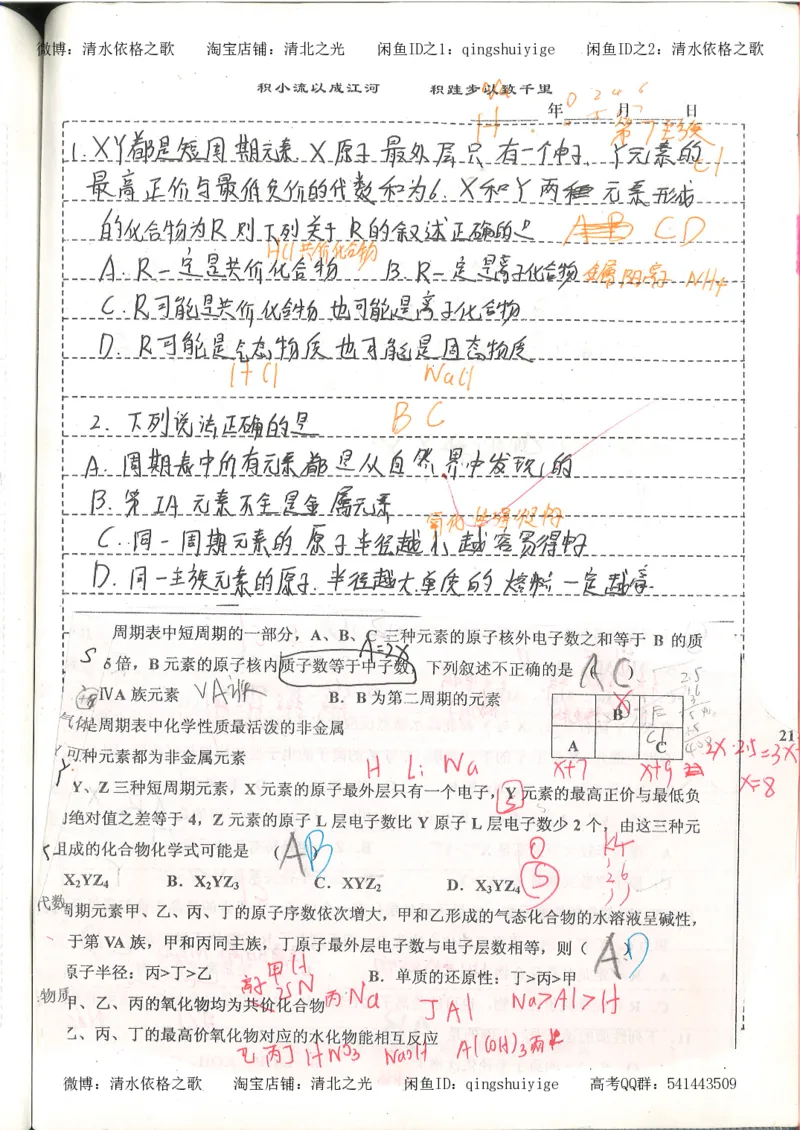 微博：清水依格之歌 淘宝店铺：清北之光 闲鱼ID之1：qingshuiyige 闲鱼ID之2：清水依格之歌
积小流以成江河 积跬步以致千里
年 月 日
第7主族
1.XY都是短周期元素，X原子最外层只有一个电子，Y元素的
Cl
最高正价与最低负价的代数和为6.X和Y两种元素形成
的化合物为R则下列关于R的叙述正确的是 CD
HCl共价化合物
A.R一定是共价化合物 B.R一定是离子化合物 金属阳离子 NH4
C.R可能是共价化合物也可能是离子化合物
D.R可能是气态物质也可能是固态物质
HCl NaCl
2.下列说法正确的是 BC
A.周期表中所有元素都是从自然界中发现的
B.第IA元素不全是金属元素
C.同一周期元素的原子半径越小越容易得电子
D.同一主族元素的原子.半径越大单质的熔点一定越高
周期表中短周期的一部分，A、B、C 三种元素的原子核外电子数之和等于 B 的质
A=2X
S 5倍，B元素的原子核内质子数等于中子数，下列叙述不正确的是（AC）
ⅣA族元素 VA族 B．B为第二周期的元素
B F
是周期表中化学性质最活泼的非金属
A C Cl
三种元素都为非金属元素
X+7 X+9
3X·2.5=3X
X=8
H Li Na
Y、Z三种短周期元素，X元素的原子最外层只有一个电子，Y元素的最高正价与最低负
S
绝对值之差等于4，Z元素的原子L层电子数比Y原子L层电子数少2个，由这三种元
组成的化合物化学式可能是 （AB）
O
X₂YZ₄ B．X₂YZ₃ C．XYZ₂ D．X₃YZ₄
S
代数
周期元素甲、乙、丙、丁的原子序数依次增大，甲和乙形成的气态化合物的水溶液呈碱性，
于第VA族，甲和丙同主族，丁原子最外层电子数与电子层数相等，则（A）
原子半径：丙>丁>乙 B．单质的还原性：丁>丙>甲
甲H
离子 乙N 丙Na 丁Al Na>Al>H
物质
甲、乙、丙的氧化物均为共价化合物
乙、丙、丁的最高价氧化物对应的水化物能相互反应
乙丙丁 HNO3 NaOH Al(OH)3两性
21
微博：清水依格之歌 淘宝店铺：清北之光 闲鱼ID：qingshuiyige 高考QQ群：541443509